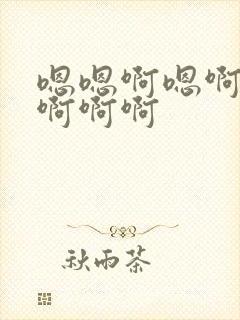 嗯嗯啊嗯啊
啊啊啊
秋雨茶